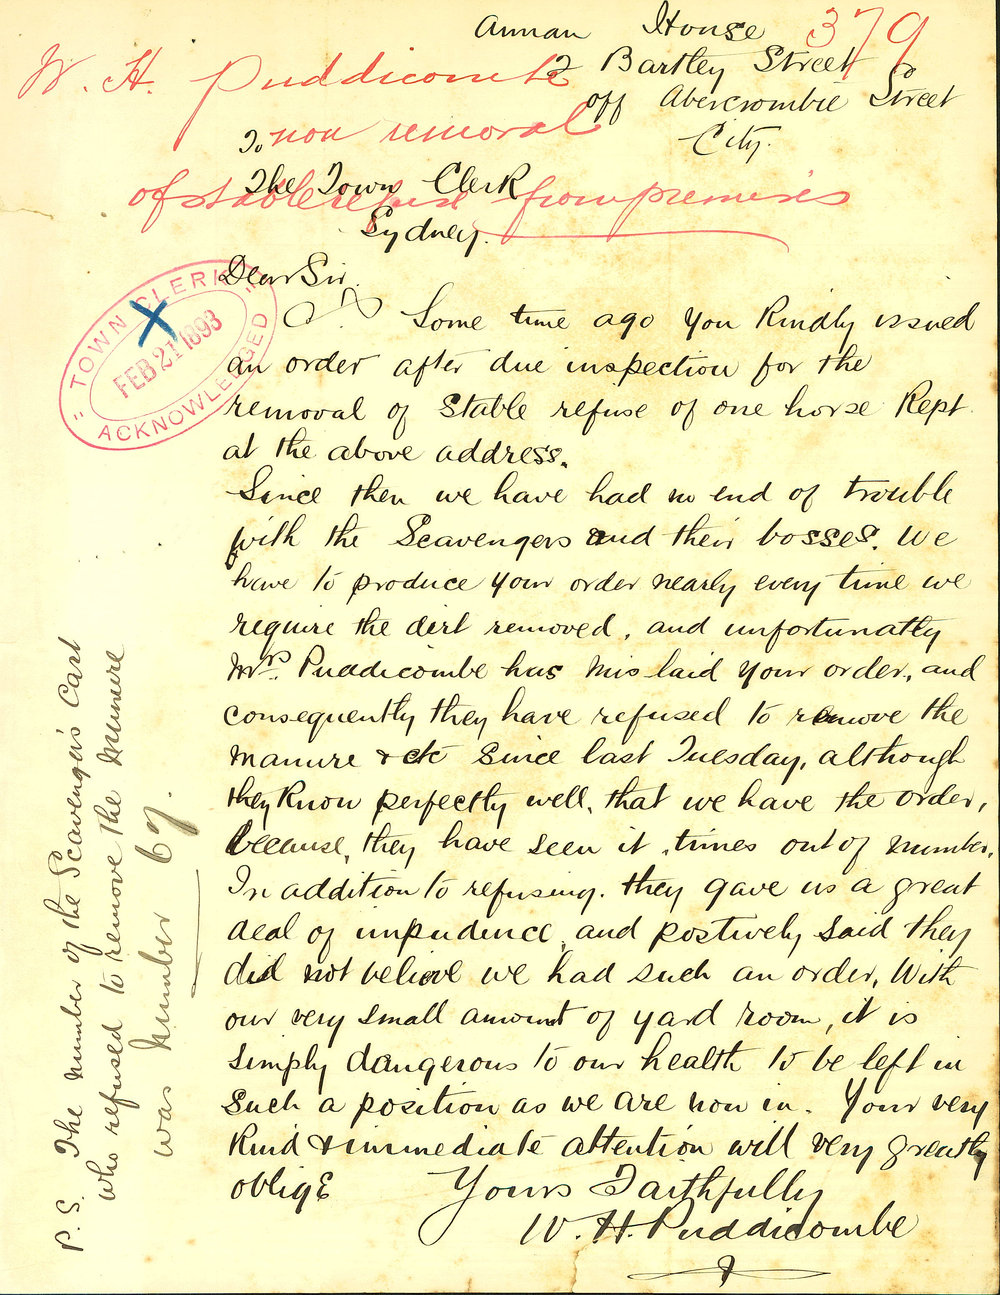 379
Annan House
2 Bartley Street
off Abercrombie Street
City.
W. H. Puddicombe
non removal
of stable refuse from premises
To
The Town Clerk
Sydney.
"TOWN CLERK"
FEB 21 1893
ACKNOWLEDGED
X
Dear Sir.
Some time ago you Kindly issued
an order after due inspection for the
removal of Stable refuse of one horse Kept
at the above address.
Since then we have had no end of trouble
with the Scavengers and their bosses. We
have to produce your order nearly every time we
require the dirt removed, and unfortunatly
Mrs. Puddicombe has mis-laid your order, and
consequently they have refused to remove the
manure & etc since last Tuesday, although
they Know perfectly well, that we have the order,
because, they have seen it, times out of number.
In addition to refusing. they gave us a great
deal of impudence, and postively said they
did not believe we had such an order, With
our very small amount of yard room, it is
simply dangerous to our health to be left in
such a position as we are now in. Your very
Kind & immediate attention will very greatly
oblige
Yours Faithfully
W. H. Puddicombe
P.S. The number of the Scavenger's Cart
who refused to remove the manure
was Number 67.